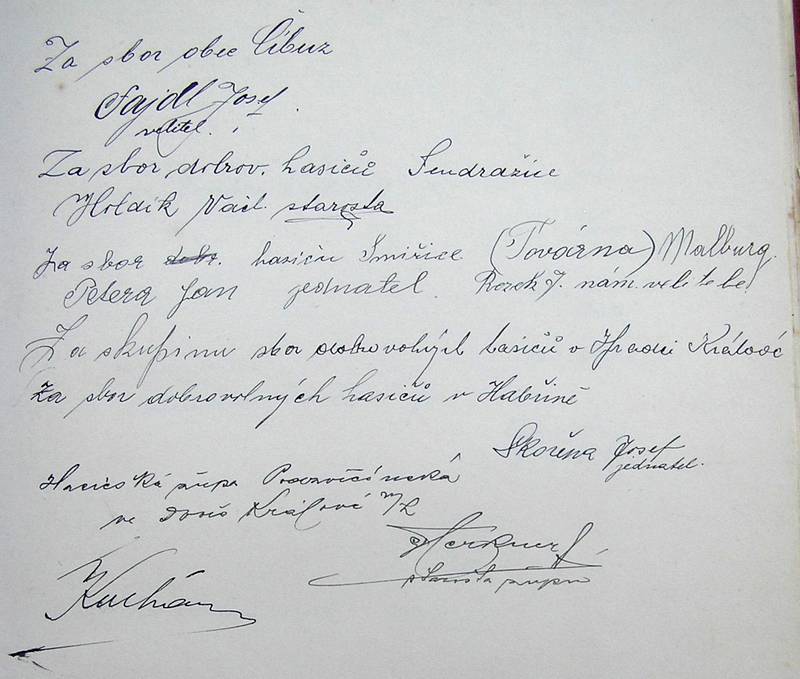 Za sbor obec Číbuz
Fajdl Josef
velitel.
Za sbor dobrov. hasičů Sendražice
Holdík Václ. starosta
Za sbor dobr. hasičů Smiřice (Továrna) Malburg.
Petera Jan jednatel Rezek J. nám. velitele
Za skupinu sbor dobrovolných hasičů v Hradci Králové
Za sbor dobrovolných hasičů v Habřině
Skořepa Josef
jednatel.
Hasičská župa Podzvičinská
ve Dvoře Králové n/L
starosta župy